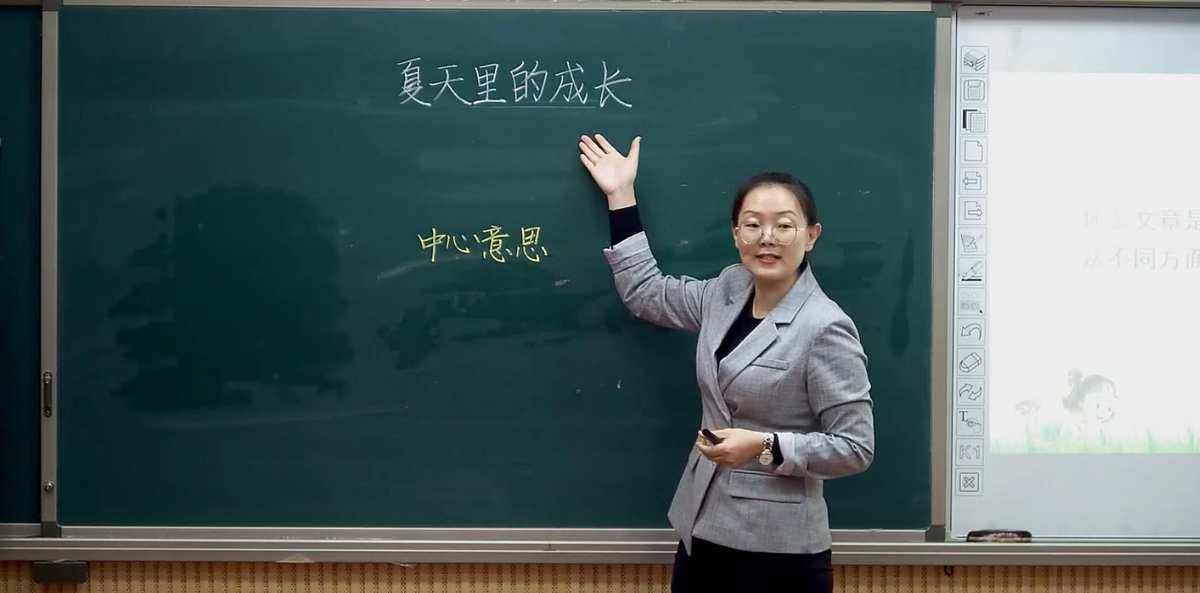 夏天里的成长
中心意思
文章是
从不同方面